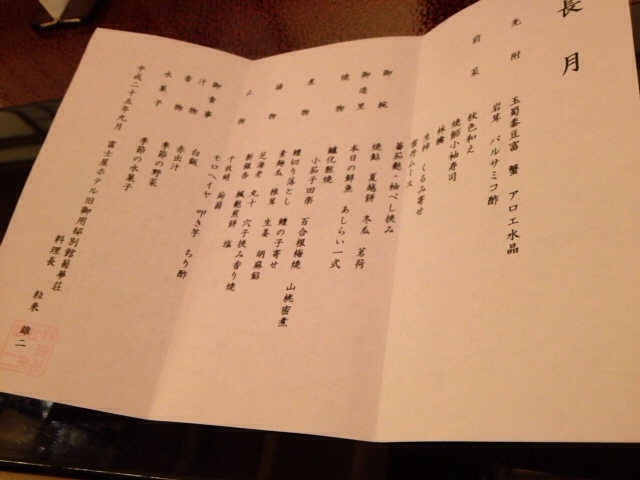 長月
先附 玉蜀黍豆富 蟹 アロエ水晶
岩茸 バルサミコ酢
前菜 秋色和え
焼鯖小袖寿司
林檎
生拌 くるみ寄せ
雲丹ムース
蕃茄麩・柚べし挟み
御椀 焼鮎 夏越餅 冬瓜 茗荷
御造里 本日の鮮魚 あしらい一式
焼物 鱸化粧焼
小茄子田楽 百合根梅焼 山桃蜜煮
煮物 鱧切り落とし 鱧の子寄せ
素麺瓜 椎茸 生姜 胡麻餡
油物 芝海老 丸十 穴子挟み香り焼
新銀杏 楓麩煎餅 塩
止物 千枚蛸 蒟蒻
モロヘイヤ 叩き芋 ちり酢
御食事 白飯
汁 赤出汁
香物 季節の野菜
水菓子 季節の水菓子
平成二十五年九月 富士屋ホテル旧御用邸別館菊華荘
料理長 粒来 雄二